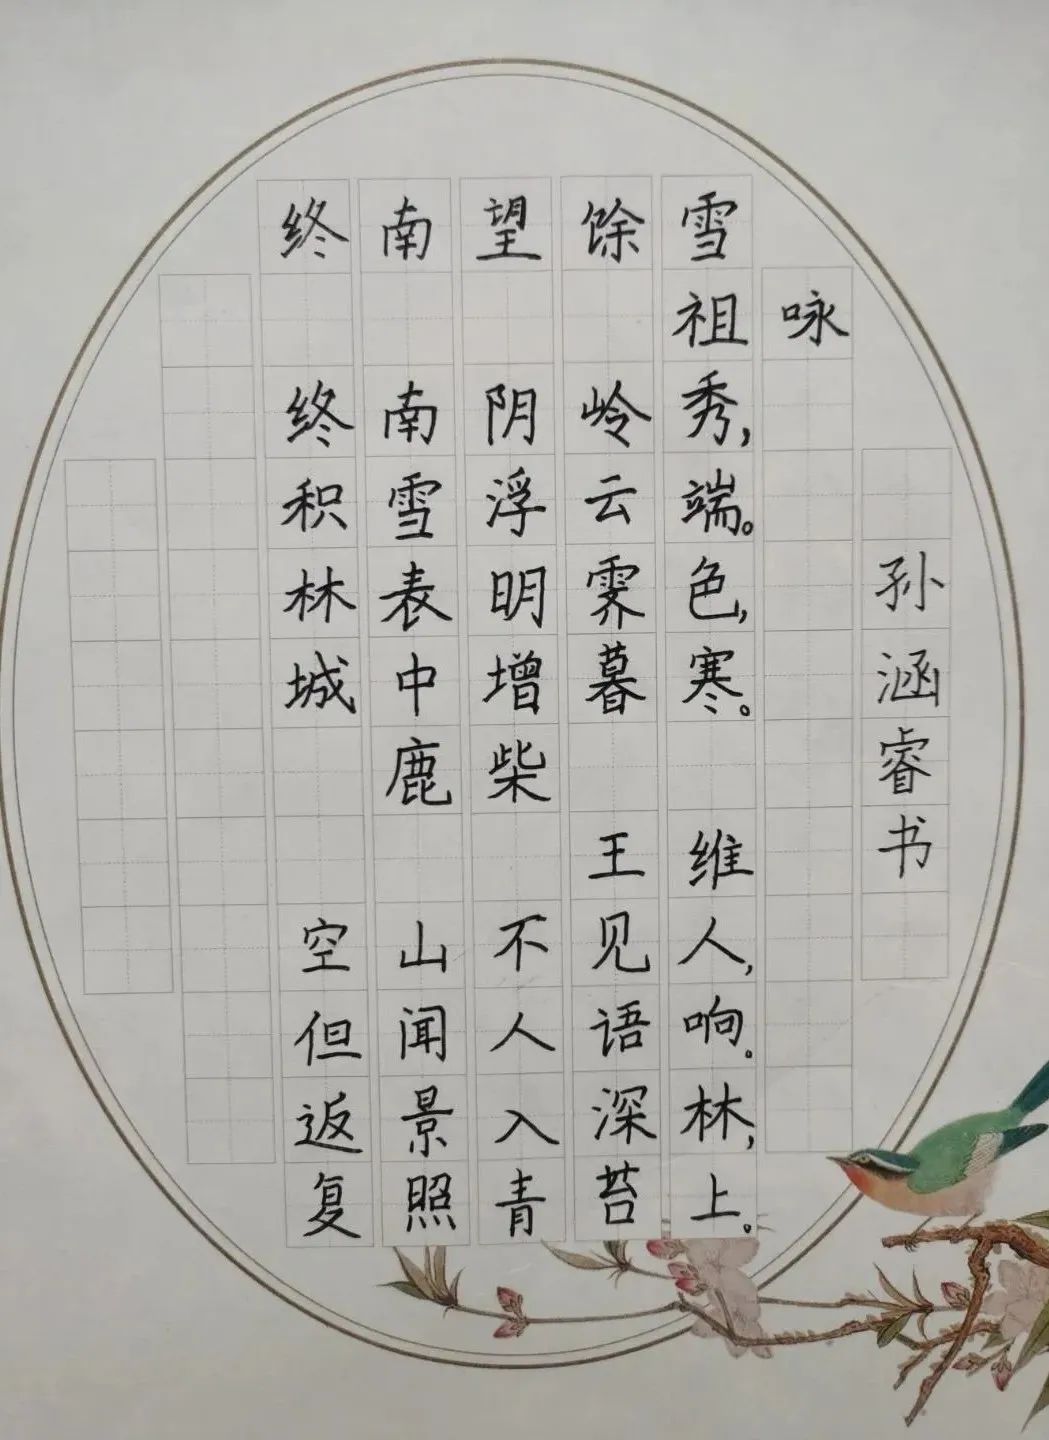 终南望馀雪
祖咏
终南阴岭秀，
积雪浮云端。
林表明霁色，
城中增暮寒。
鹿柴
王维
空山不见人，
但闻人语响。
返景入深林，
复照青苔上。
孙涵睿书